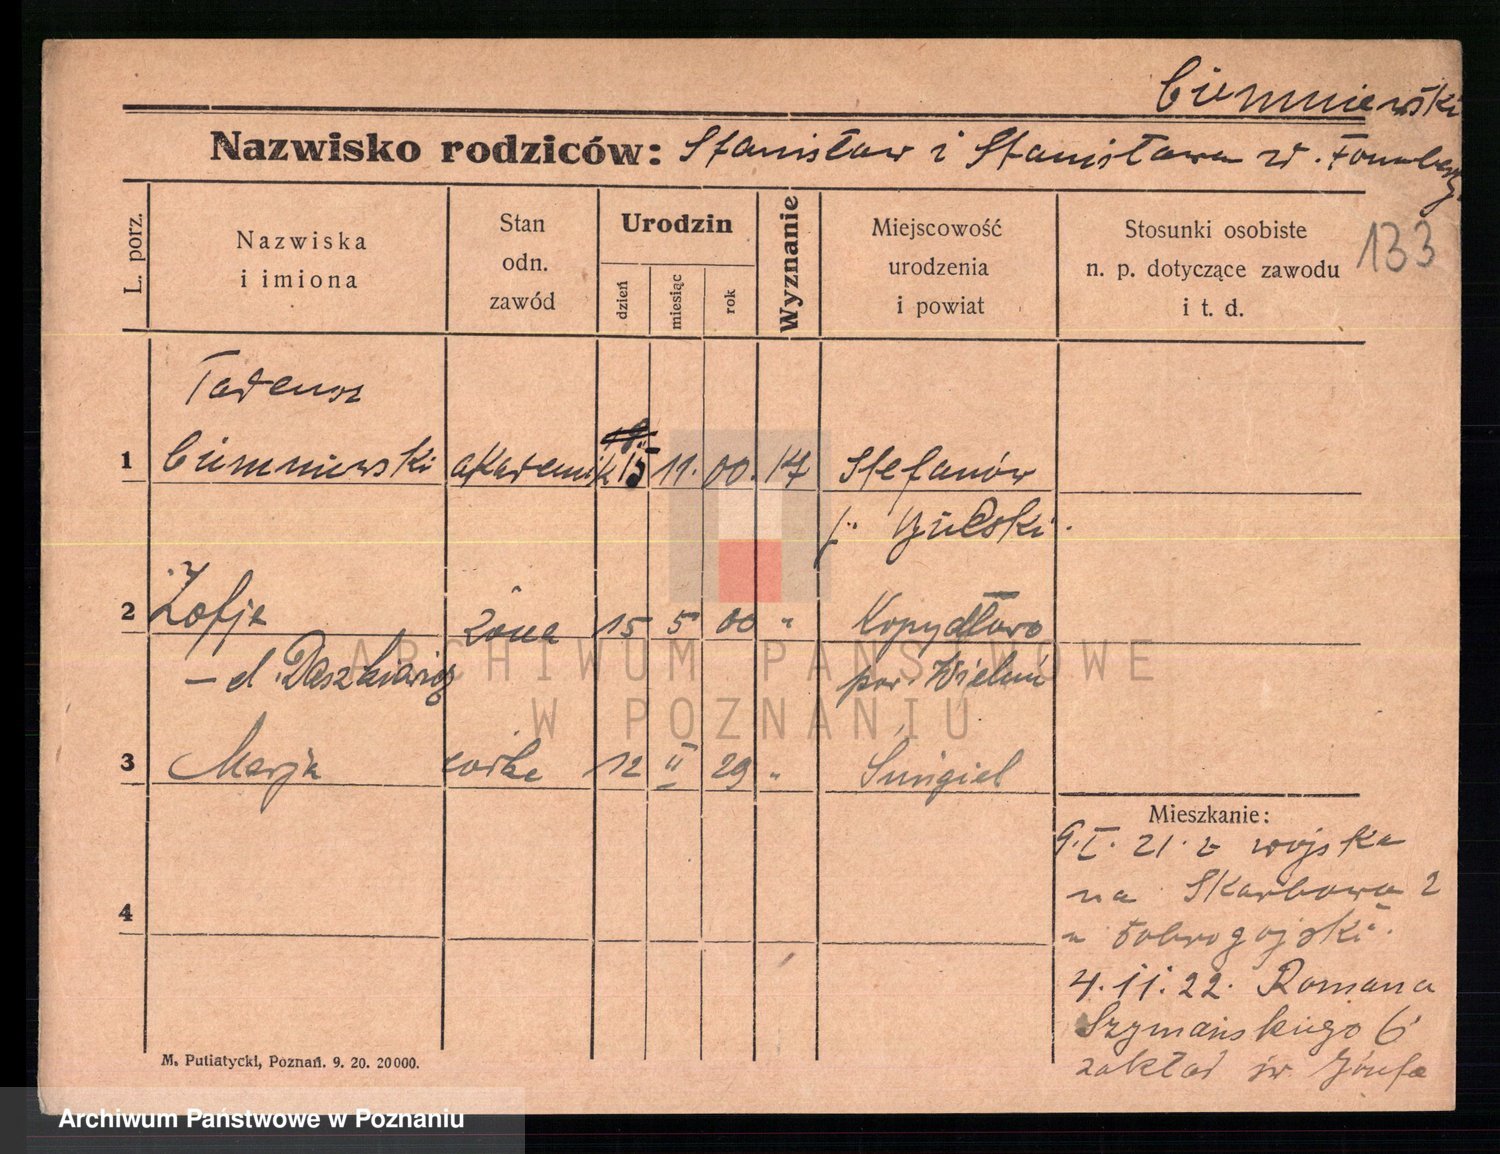 Ciemniewski
Nazwisko rodziców: Stanisław i Stanisława z d.
133
L. porz.
Nazwiska
i imiona
Stan
odn.
zawód
Urodzin
dzień
miesiąc
rok
Wyznanie
Miejscowość
urodzenia
i powiat
Stosunki osobiste
n. p. dotyczące zawodu
i t. d.
Tadeusz
1 Ciemniewski akademik 15 11. 00. Stefanów
2 Zofja żona 15 5 00 " Kopydłowo
– d. Daszkiewicz pow. Wieluń
3 Marja córka 12 II 29 " Śmigiel
4
Mieszkanie:
9. I. 21. z wojska
na Skarbowa 2
u Dobrogojski.
4. 11. 22. Romana
Szymańskiego 6
zakład św. Józefa
M. Putiatycki, Poznań. 9. 20. 20000.
ARCHIWUM PAŃSTWOWE
W POZNANIU
Archiwum Państwowe w Poznaniu